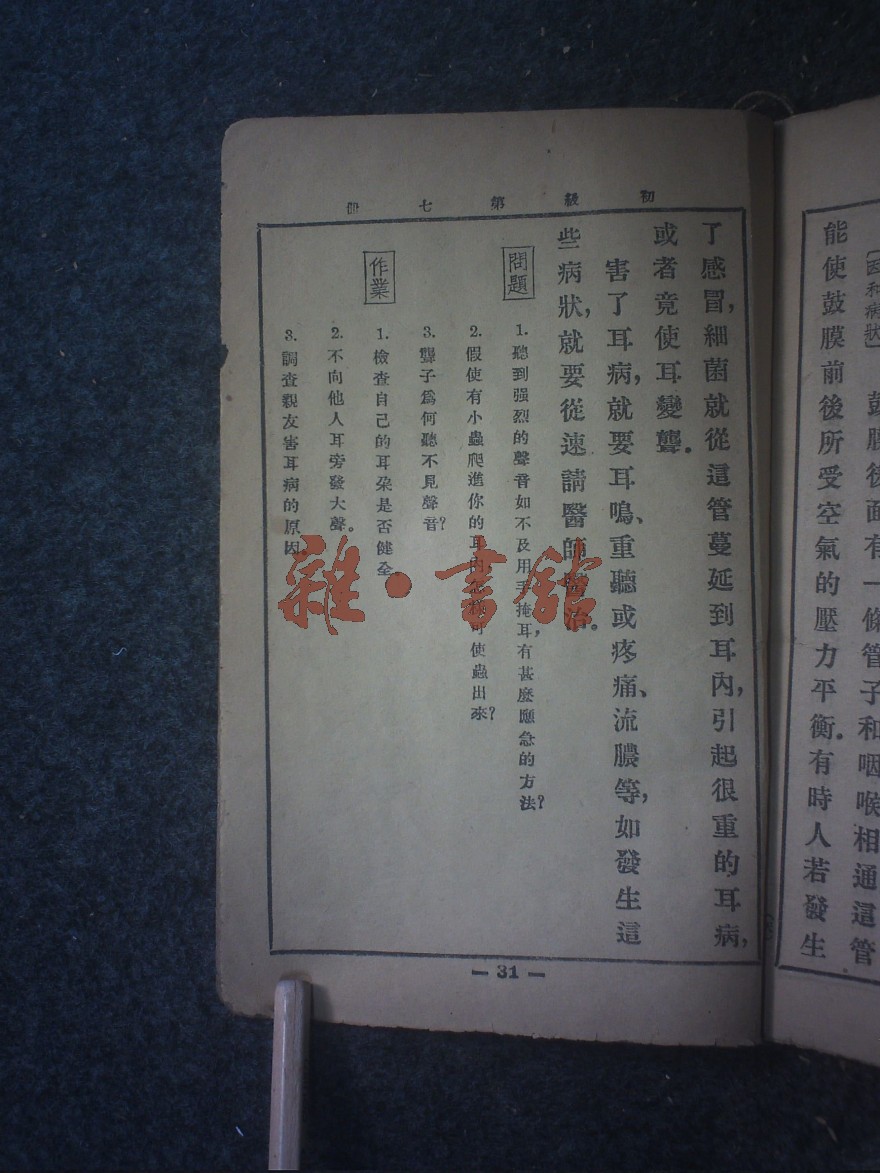 〔因和病狀〕 鼓膜後面有一條管子和咽喉相通這管
能使鼓膜前後所受空氣的壓力平衡。有時人若發生
初級第七冊
了感冒，細菌就從這管蔓延到耳內，引起很重的耳病，
或者竟使耳變聾。
害了耳病，就要耳鳴、重聽或疼痛、流膿等，如發生這
些病狀，就要從速請醫師醫治。
問題
1. 聽到强烈的聲音如不及用手掩耳，有甚麼應急的方法？
2. 假使有小蟲爬進你的耳內怎樣可使蟲出來？
3. 聾子爲何聽不見聲音？
作業
1. 檢查自己的耳朶是否健全
2. 不向他人耳旁發大聲。
3. 調查親友害耳病的原因。
— 31 —
雜·書館